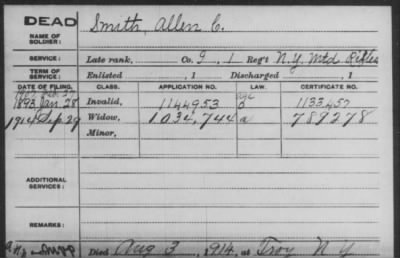 DEAD
NAME OF SOLDIER: Smith, Allen C.
SERVICE: Late rank, Co. G, 1 Reg't N.Y. Mtd. Rifles
TERM OF SERVICE: Enlisted , 1 Discharged , 1
DATE OF FILING. CLASS. APPLICATION NO. LAW. CERTIFICATE NO.
1893 Jan. 28 Invalid, 1144953 1133457
1914 Sep. 29 Widow, 1,034,744 a 789278
Minor,
ADDITIONAL SERVICES:
REMARKS:
Died Aug 3, 1914, at Troy N Y